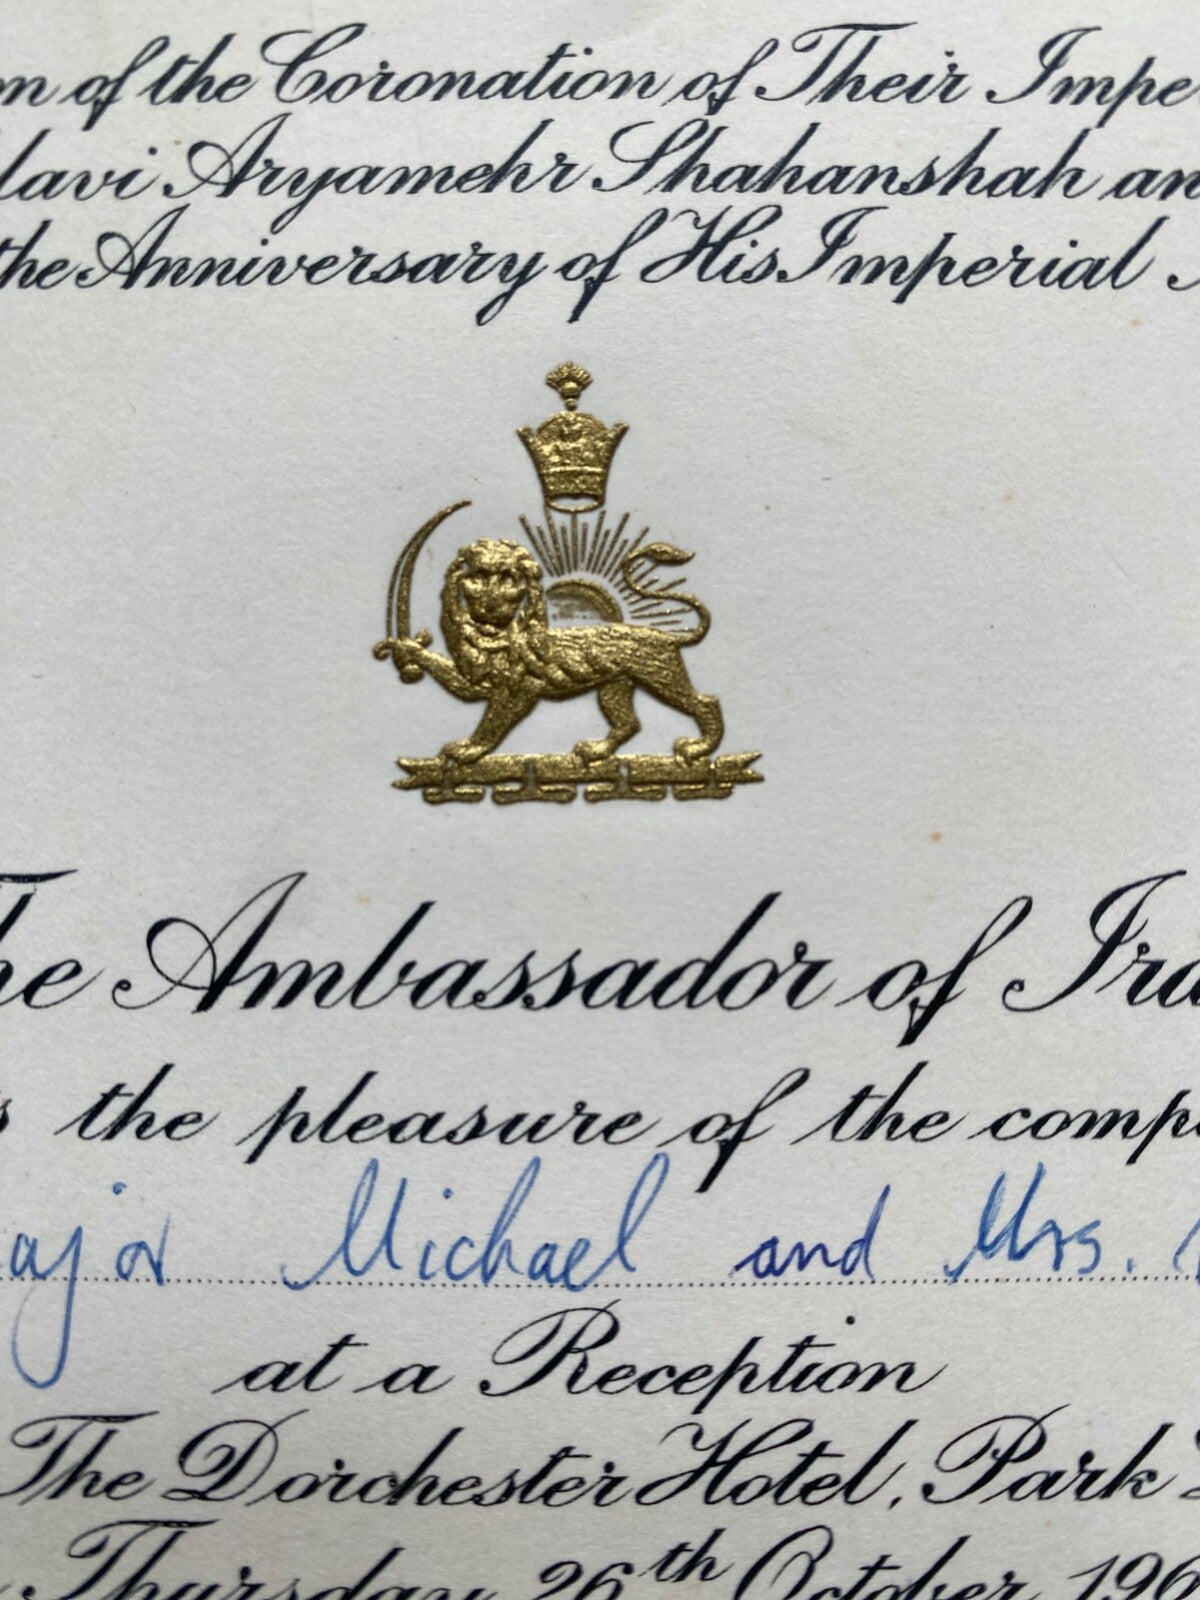 of the Coronation of Their
Aryamehr Shahanshah
the Anniversary of His Imperial
Ambassador of
the pleasure of the
Michael and Mrs.
at a Reception
The Dorchester Hotel, Park
Thursday 26th October